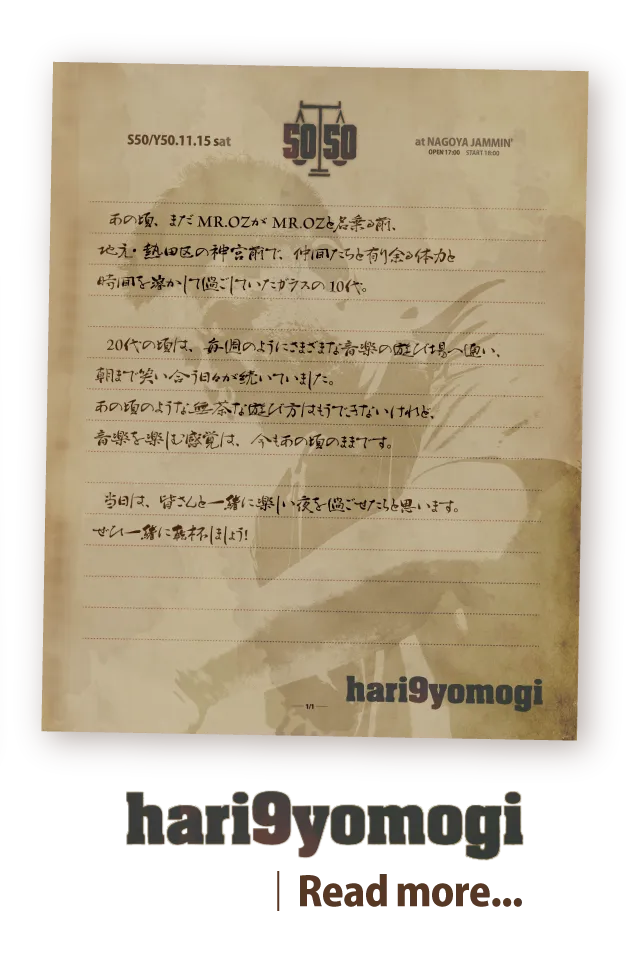 S50/Y50.11.15 sat
50 50
at NAGOYA JAMMIN'
OPEN 17:00 START 18:00
あの頃、まだ MR.OZが MR.OZと名乗る前、
地元・熱田区の神宮前で、仲間たちと有り余る体力と
時間を溶かして過ごしていたガラスの 10代。
20代の頃は、毎週のようにさまざまな音楽の遊び場へ通い、
朝まで笑い合う日々が続いていました。
あの頃のような無茶な遊び方はもうできないけれど、
音楽を楽しむ感覚は、今もあの頃のままです。
当日は、皆さんと一緒に楽しい夜を過ごせたらと思います。
ぜひ一緒に乾杯しましょう!
hari9yomogi
1/1
hari9yomogi
Read more...